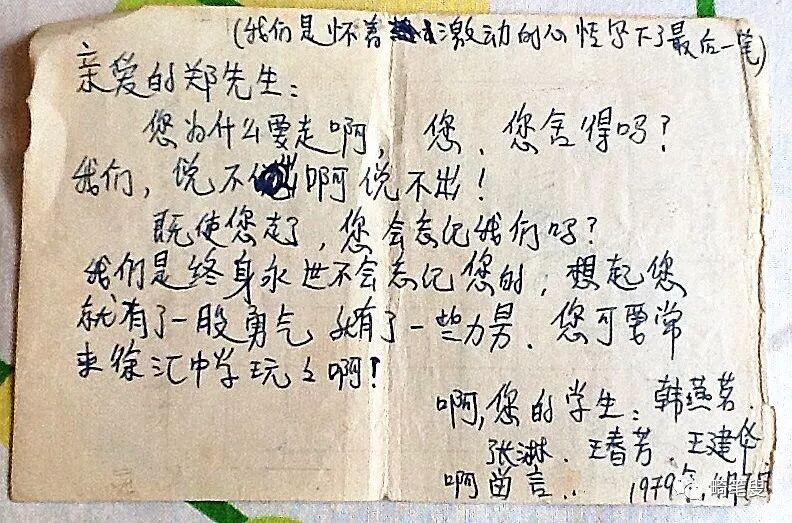 (我们是怀着激动的心情写下了最后一笔)
亲爱的郑先生：
您为什么要走啊，您、您舍得吗？
我们，说不出啊说不出！
既使您走了，您会忘记我们吗？
我们是终身永世不会忘记您的，想起您
就有了一股勇气 就有了一些力量、您可要常
来徐汇中学玩玩啊！
啊，您的学生：韩燕茗、
张淋、王春芳、王建华
啊留言．． 1979年
崎笔叟